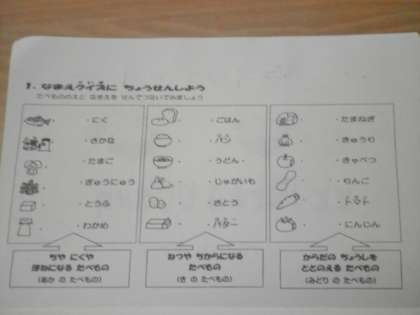 1. なまえクイズに ちょうせんしよう
たべもののえと なまえを せんでつないでみましょう
・にく
・さかな
・たまご
・ぎゅうにゅう
・とうふ
・わかめ
・ごはん
・パン
・うどん
・じゃがいも
・さとう
・バター
・たまねぎ
・きゅうり
・きゃべつ
・りんご
・トマト
・にんじん
ちや にくや
ほねになる たべもの
(あか の たべもの)
ねつや ちからになる
たべもの
(き の たべもの)
からだの ちょうしを
ととのえる たべもの
(みどり の たべもの)